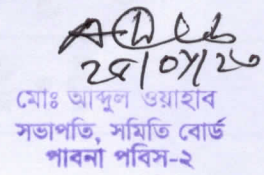 ২৫/০৭/২৩
মোঃ আব্দুল ওয়াহাব
সভাপতি, সমিতি বোর্ড
পাবনা পবিস-২